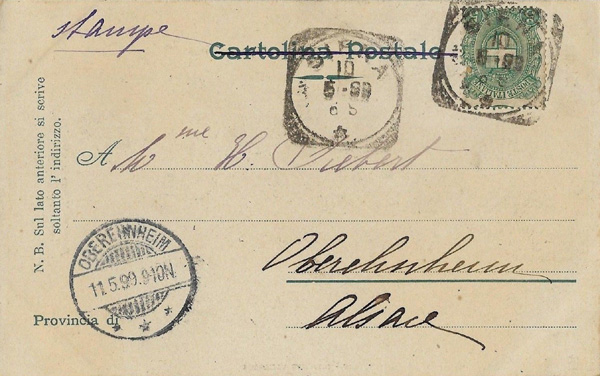 stampe
Cartolina Postale
10
5-99
6 S
10
5-99
6 S
POSTE ITALIANE
N. B. Sul lato anteriore si scrive
soltanto l'indirizzo.
A Mme H. Siebert
OBEREHNHEIM
11.5.99.9-10N.
Oberehnheim
Provincia di
Alsace